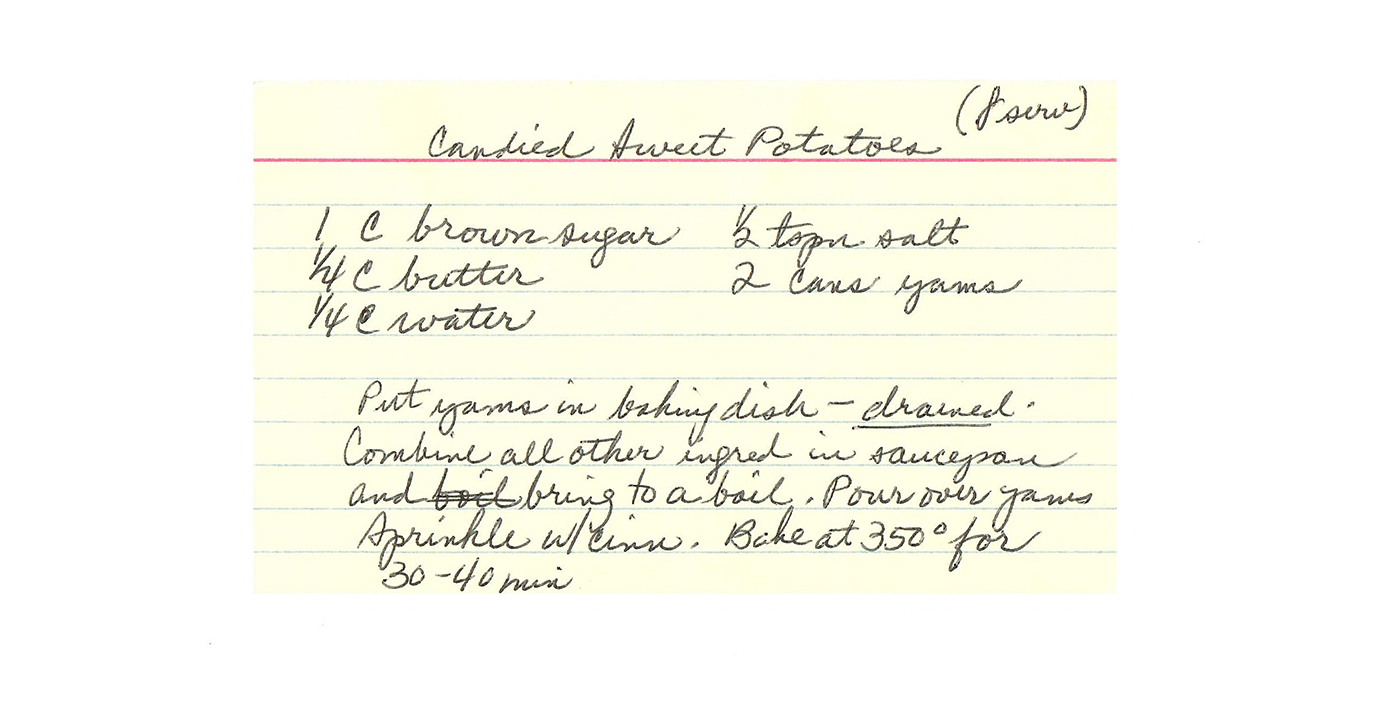 (8 serv)
Candied Sweet Potatoes
1 C brown sugar
1/4 C butter
1/4 C water
1/2 tspn salt
2 cans yams
Put yams in baking dish – drained.
Combine all other ingred in saucepan
and boil bring to a boil. Pour over yams
Sprinkle w/cinn. Bake at 350° for
30-40 min